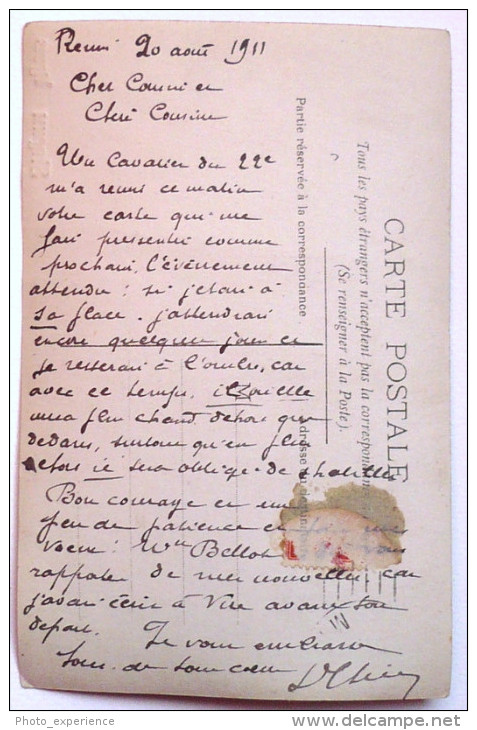 20 août 1911
Cher Cousin et
Chère Cousine
Un Cavalier du 22e
m'a remis ce matin
votre carte qui me
fait pressentir comme
prochain l'évènement
attendu : si j'étais à
sa place j'attendrais
encore quelques jours et
je resterais à l'ombre, car
avec ce temps,
plus chaud dehors que
dedans, surtout qu'en plus
dehors sera obligé de
Bon courage et un
peu de patience et
voeux : Bellot
rapporte de mes nouvelles car
j'avais écrit à avant son
départ.
Je vous embrasse
tous de tout coeur
CARTE POSTALE
Tous les pays étrangers n'acceptent pas la correspondance
(Se renseigner à la Poste).
Partie réservée à la correspondance
Adresse du
Photo_experience
www.delcampe.net